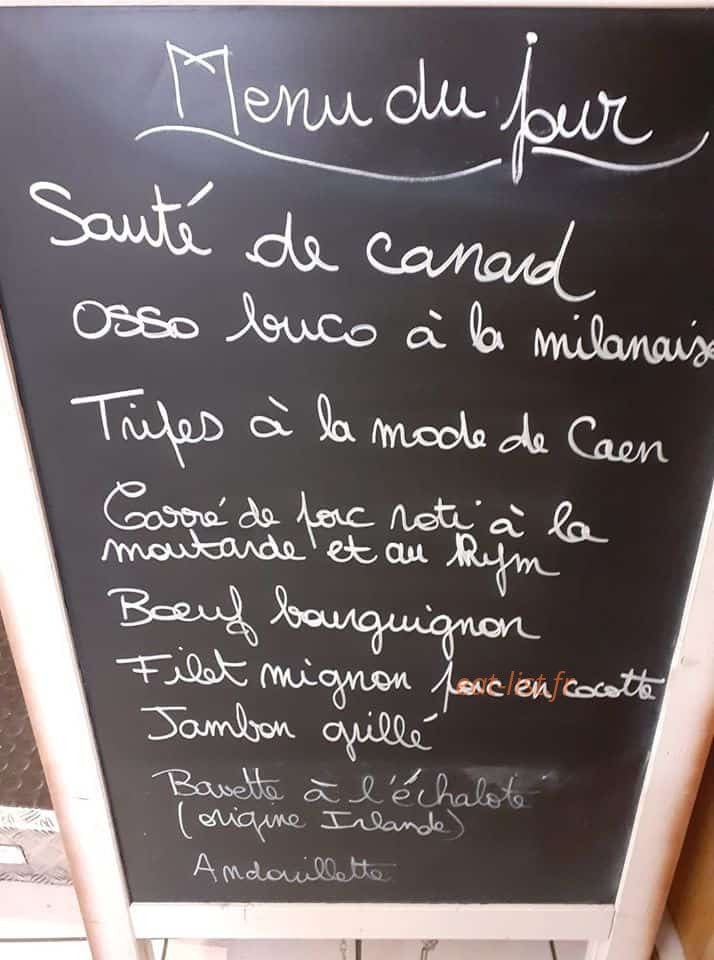 Menu du jour
Sauté de canard
osso buco à la milanaise
Tripes à la mode de Caen
Carré de porc roti à la
moutarde et au thym
Bœuf bourguignon
Filet mignon porc en cocotte
eat-list.fr
Jambon grillé
Bavette à l'échalote
(origine Irlande)
Andouillette